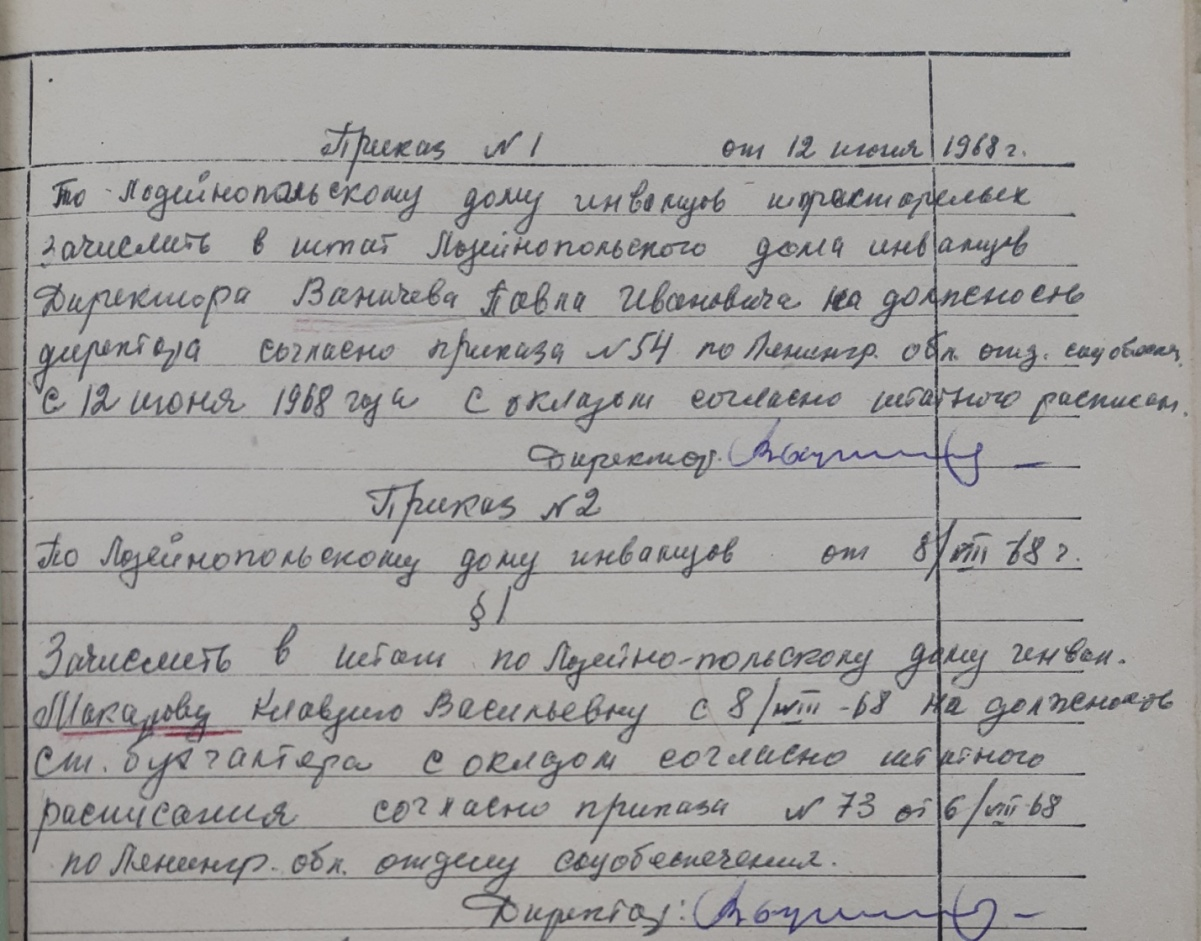 Приказ N 1 от 12 июня 1968 г.
По Лодейнопольскому дому инвалидов
зачислить в штат Лодейнопольского дома инвалидов
Директора Ваничева Павла Ивановича на должность
директора согласно приказа N 54 по Ленингр. обл. отд.
с 12 июня 1968 года с окладом согласно штатного расписан.
Директор.
Приказ N 2
По Лодейнопольскому дому инвалидов от 8/VIII 68 г.
§ 1
Зачислить в штат по Лодейно-польскому дому инвал.
Макарову Клавдию Васильевну с 8/VIII-68 на должность
ст. бухгалтера с окладом согласно штатного
расписания согласно приказа N 73 от 6/VIII-68
по Ленингр. обл. отделу соцобеспечения.
Директор: